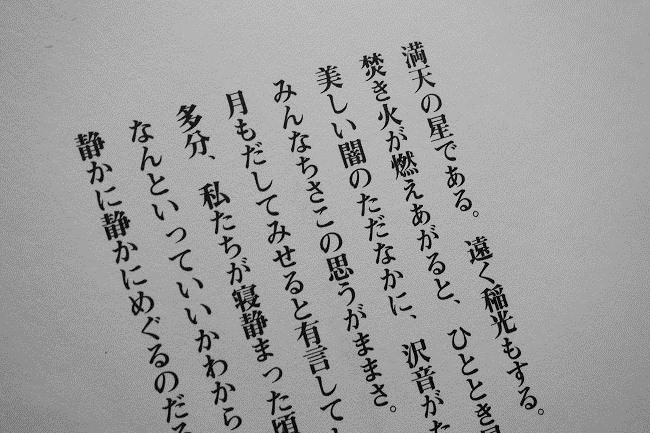 満天の星である。遠く稲光もする。
焚き火が燃えあがると、ひととき
美しい闇のただなかに、沢音が
みんなちさこの思うがままさ。
月もだしてみせると有言して
多分、私たちが寝静まった頃
なんといっていいかわから
静かに静かにめぐるのだ